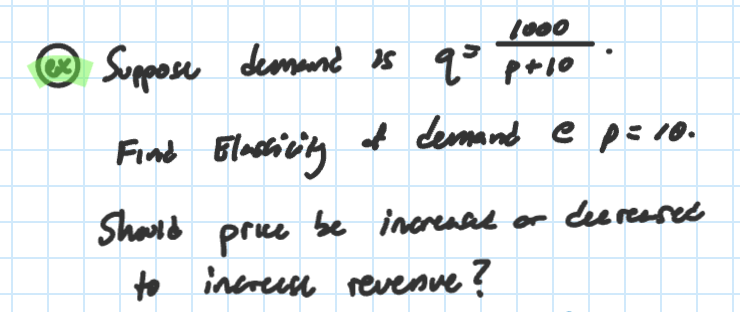 ex Suppose demand is q = 1000/(p+10).
Find Elasticity of demand @ p = 10.
Should price be increased or decreased
to increase revenue?